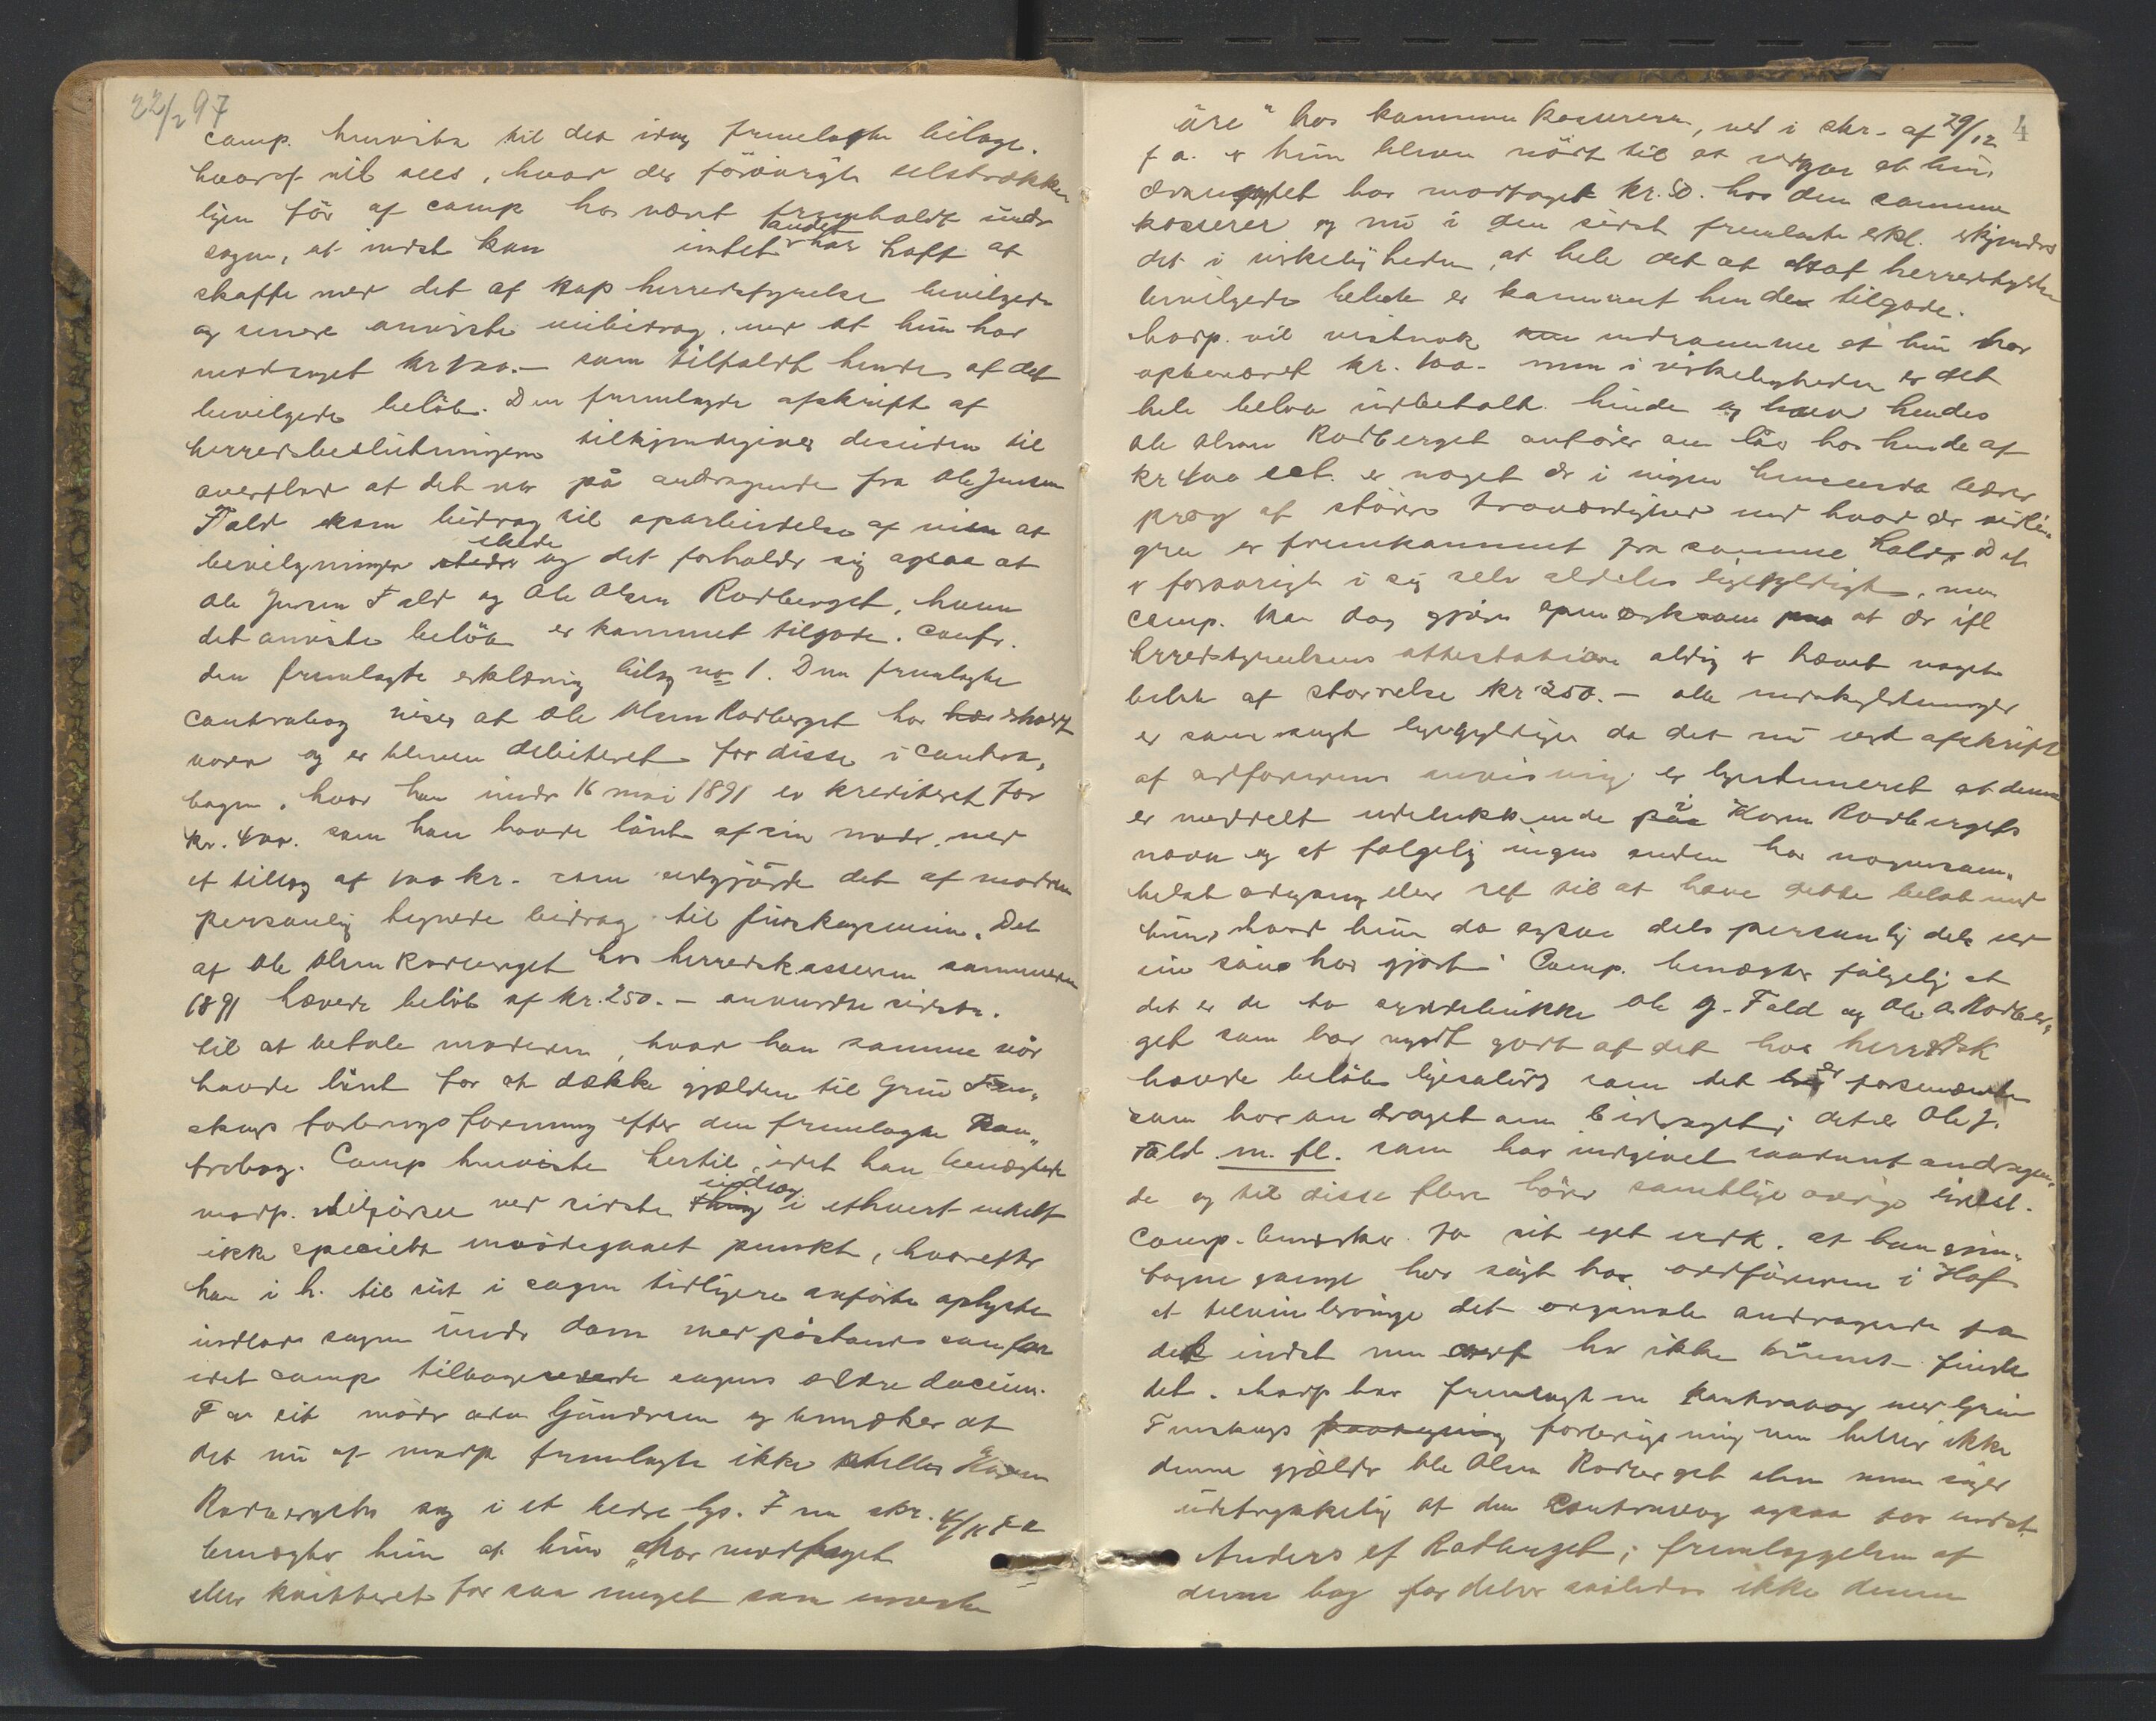 22/2 97
comp. henviste til det idag fremlagte bilage.
hvoraf vil sees, hvad der förövrigt selstrække
ligen för af comp har vært fremholdt under
sagen, at indst kun intet andet har haft at
skaffe med det af Hap herredstyrelse bevilgede
og senere anviste veibidrag, end at hun har
modtaget kr 100.– som tilfaldt hende af det
bevilgede belöb. Den fremlagte afskrift af
herredsbeslutningen tilkjendegiver desuden til
overflod at det var på andragende fra Ole Jensen
Fald som bidrag til oparbeidelse af veien at
bevilgningen skede og det forholder sig ogsaa at
Ole Jensen Fald og Ole Olsen Rodberget, hvem
det anviste belöb er kommet tilgode. Confr.
den fremlagte erklæring bilag no 1. Den fremlagte
contrabog viser at Ole Olsen Rodberget har erholdt
varer og er bleven debiteret for disse i contra„
bogen, hvor han under 16 mai 1891 er krediteret for
kr. 400. som han havde lånt af sin moder, med
et tillæg af 100 kr. som udgjörde det af moderen
personlig tegnede bidrag til finskogveien. Det
af Ole Olsen Rodberget hos herredskassereren sommeren
1891 hævede belöb af kr. 250.– anvendte sidste.
til at betale moderen, hvad han samme vår
havde lånt for at dække gjælden til Grue Fin„
skogs forbrugsforening efter den fremlagte Kon„
trabog. Comp henviste hertil, idet han benægtede
modp. tilförsel ved sidste indlæg i ethvert enkelt
ikke specielt imödegaaet punkt, hvorefter
han i h. til sit i sagen tidligere anförte oplyste
indlod sagen under dom med påstand som för
idet comp tilbageleverede sagens ældre docum.
For cit möder adv. Gundersen og bemærker at
det nu af modp fremlagte ikke stiller Karen
Rodbergets sag i et bedre lys. I en skr. 4/11 f a
benægter hun at hun „har modtaget
eller kvitteret for saa meget som eneste
4
öre" hos kommune kassereren, ved i skr. af 29/12
f a. er hun bleven nödt til at vedgaa at hun
har modtaget kr. 50. hos den samme
kasserer og nu i den sidst fremlagte erkl. erkjendes
det i virkeligheden, at hele det at af herredstyrelsen
bevilgede belöb er kommet hende tilgode.
Modp. vil vistnok indrömme at hun har
opbevaret kr. 100.– men i virkeligheden er det
hele belöb udbetalt hende og hvad hendes
Ole Olsen Rodberget anförer om lån hos hende af
kr 400 ect. er noget der i ingen henseende bærer
præg af större troværdighed end hvad der virke„
gen er fremkommet fra samme hold. Det
er forövrigt i sig selv aldeles ligegyldigt, men
comp. kan dog gjöre opmærksom paa at der ifl
herredstyrelsens attestation aldrig er hævet noget
belöb af störrelse kr 250.– alle undskyldninger
er som sagt ligegyldige da det nu ved afskrift
af ordförerens anvisning er bestemeret at denne
er meddelt udelukkende i Karen Rodbergets
navn og at fölgelig ingen anden har nogensom„
helst adgang eller ret til at hæve dette belöb end
hun, hvad hun da ogsaa dels personlig dels ved
sin sön har gjort. Comp. benægter fölgelig at
det er de to Ole J. Fald og Ole O. Rodber„
get som har nydt godt af det hos herredsk
hævde belöb ligesålidt som det er forsenævnte
som har andraget om bidraget; det er Ole J.
Fald m. fl. som har indgivet saadant andragen„
de og til disse flere hörer samtlige övrige indst.
Comp. bemærker for sit eget vedk. at han gjen„
tagne gange har sögt hos ordföreren i Hof
at tilveiebringe det originale andragende fra
det indst men ordf har ikke kunnet finde
det. Modp har fremlagt en kontrabog med Grue
Finskogs forbrugsforening men heller ikke
denne gjælder Ole Olsen Rodberget alene men siger
udtrykkelig at den Contrabog ogsaa for indst.
Anders ef Rodberget; fremlæggelsen af
denne bog fordeler således ikke denne